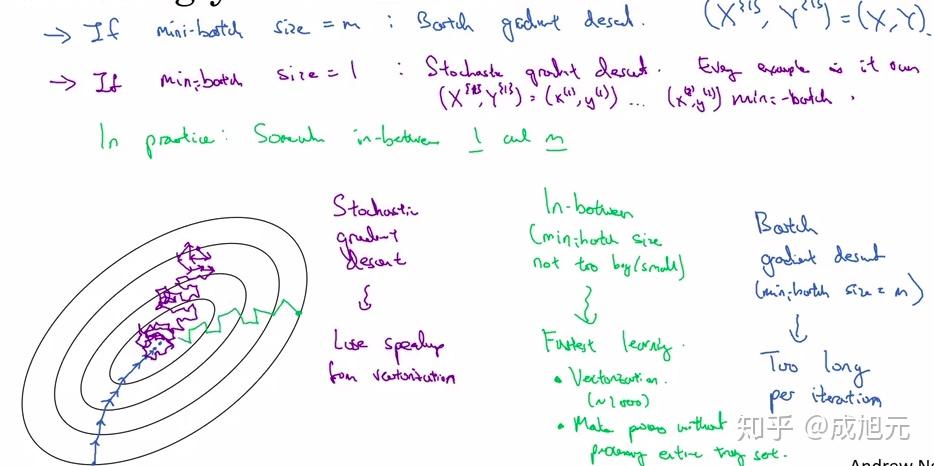 → If mini-batch size = m : Batch gradient descent. (X^{1}, Y^{1}) = (X, Y).
→ If mini-batch size = 1 : Stochastic gradient descent. Every example is it own
(X^{1}, Y^{1}) = (x^(1), y^(1)) ... (x^(2), y^(2)) mini-batch.
In practice: Somewhere in-between 1 and m
Stochastic
gradient
descent
Lose speedup
from vectorization
In-between
(mini-batch size
not too big/small)
Fastest learning.
• Vectorization.
(~1000)
• Make progress without
processing entire training set.
Batch
gradient descent
(mini-batch size = m)
Too long
per iteration
知乎 @成旭元
Andrew